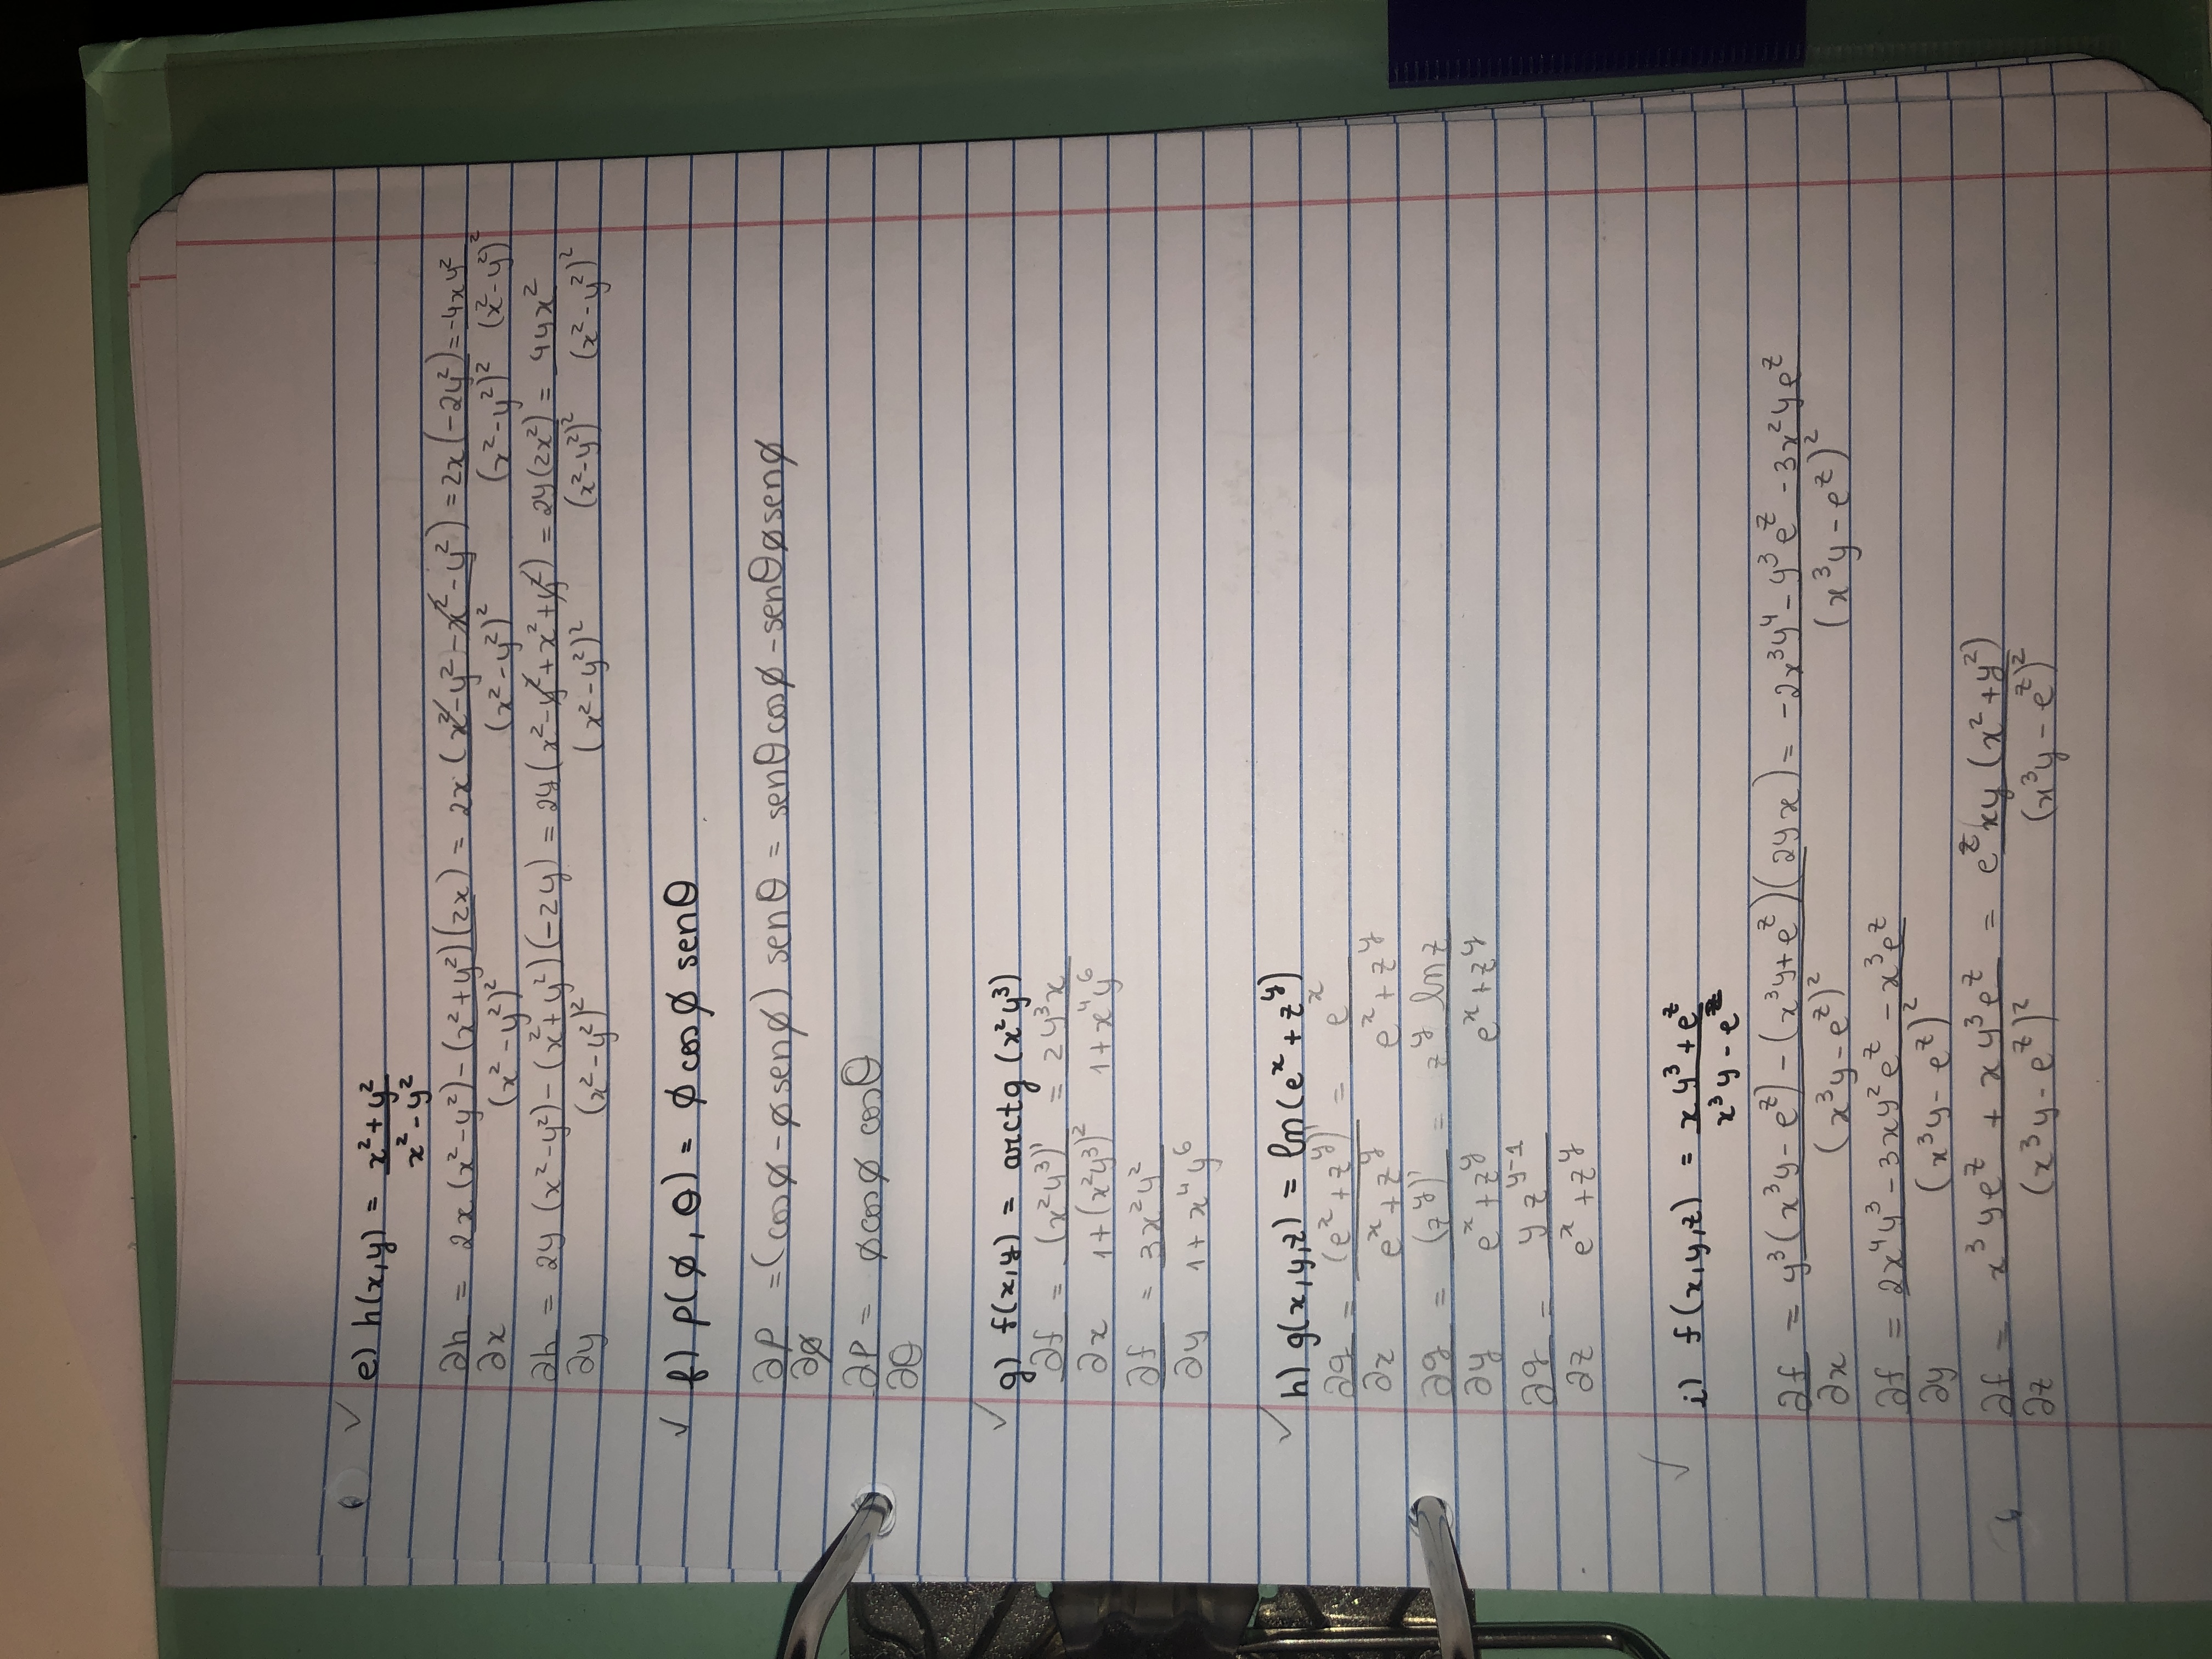 e) h(x,y) = (x² + y²)/(x² - y²)
∂h/∂x = (2x (x² - y²) - (x² + y²)(2x))/(x² - y²)² = (2x (x² - y² - x² - y²))/(x² - y²)² = (2x (-2y²))/(x² - y²)² = (-4xy²)/(x² - y²)²
∂h/∂y = (2y (x² - y²) - (x² + y²)(-2y))/(x² - y²)² = (2y (x² - y² + x² + y²))/(x² - y²)² = (2y (2x²))/(x² - y²)² = (4yx²)/(x² - y²)²
f) p(φ, θ) = φ cos φ sen θ
∂p/∂φ = (cos φ - φ sen φ) sen θ = sen θ cos φ - sen θ φ sen φ
∂p/∂θ = φ cos φ cos θ
g) f(x,y) = arctg (x² y³)
∂f/∂x = (x² y³)'/(1 + (x² y³)²) = (2y³x)/(1 + x⁴ y⁶)
∂f/∂y = (3x² y²)/(1 + x⁴ y⁶)
h) g(x,y,z) = ln(e^x + z^y)
∂g/∂x = (e^x + z^y)'/(e^x + z^y) = e^x/(e^x + z^y)
∂g/∂y = (z^y)'/(e^x + z^y) = (z^y ln z)/(e^x + z^y)
∂g/∂z = (y z^(y-1))/(e^x + z^y)
i) f(x,y,z) = (x y³ + e^z)/(x³ y - e^z)
∂f/∂x = (y³ (x³y - e^z) - (x³y + e^z)(2yx))/(x³y - e^z)² = (-2x³y⁴ - y³e^z - 3x²ye^z)/(x³y - e^z)²
∂f/∂y = (2x⁴y³ - 3xy²e^z - x³e^z)/(x³y - e^z)²
∂f/∂z = (x³ye^z + xy³e^z)/(x³y - e^z)² = (e^z xy (x² + y²))/(x³y - e^z)²